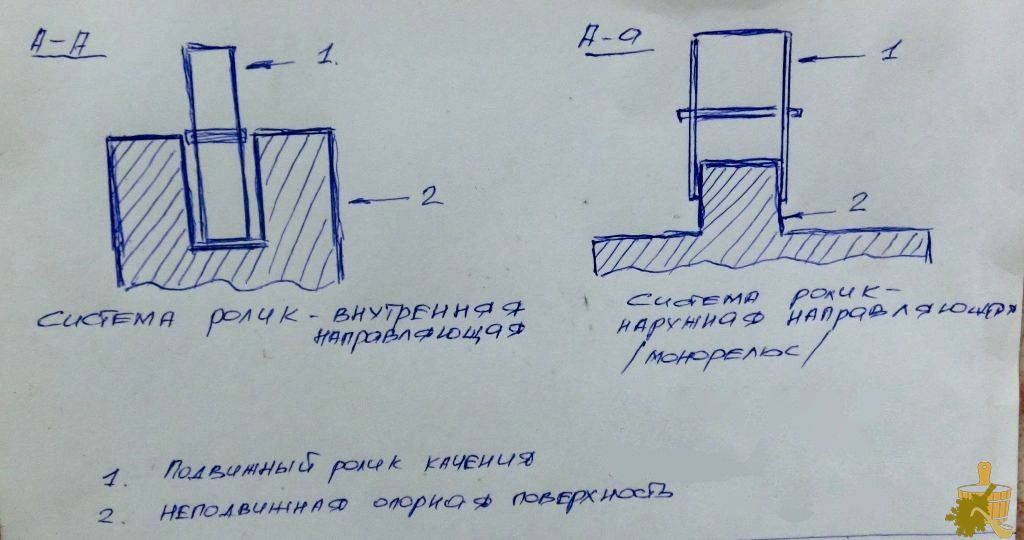 А-А
1.
2
СИСТЕМА РОЛИК - ВНУТРЕННЯЯ
НАПРАВЛЯЮЩАЯ
А-а
1
2
СИСТЕМА РОЛИК-
НАРУЖНАЯ НАПРАВЛЯЮЩАЯ
/МОНОРЕЛЬС/
1. ПОДВИЖНЫЙ РОЛИК КАЧЕНИЯ
2. НЕПОДВИЖНАЯ ОПОРНАЯ ПОВЕРХНОСТЬ